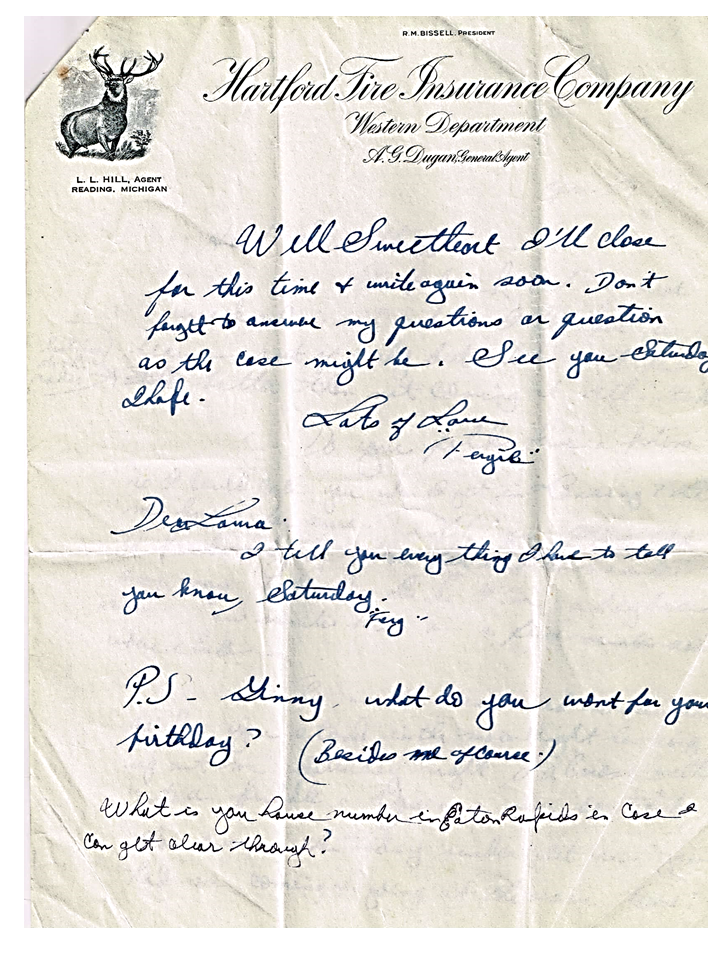 R.M. BISSELL, PRESIDENT
Hartford Fire Insurance Company
Western Department
A.G. Dugan, General Agent
L. L. HILL, AGENT
READING, MICHIGAN
Well Sweetheart I'll close
for this time & write again soon. Don't
forget to answer my questions or question
as the case might be. See you Saturday
I hope.
Lots of Love
"Fergie"
Dear Lorna.
I tell you every thing I have to tell
you know, Saturday.
"Ferg"
P.S - Ginny, what do you want for your
birthday? (Besides me of course.)
What is you house number in Eaton Rapids in case I
can get clear through?